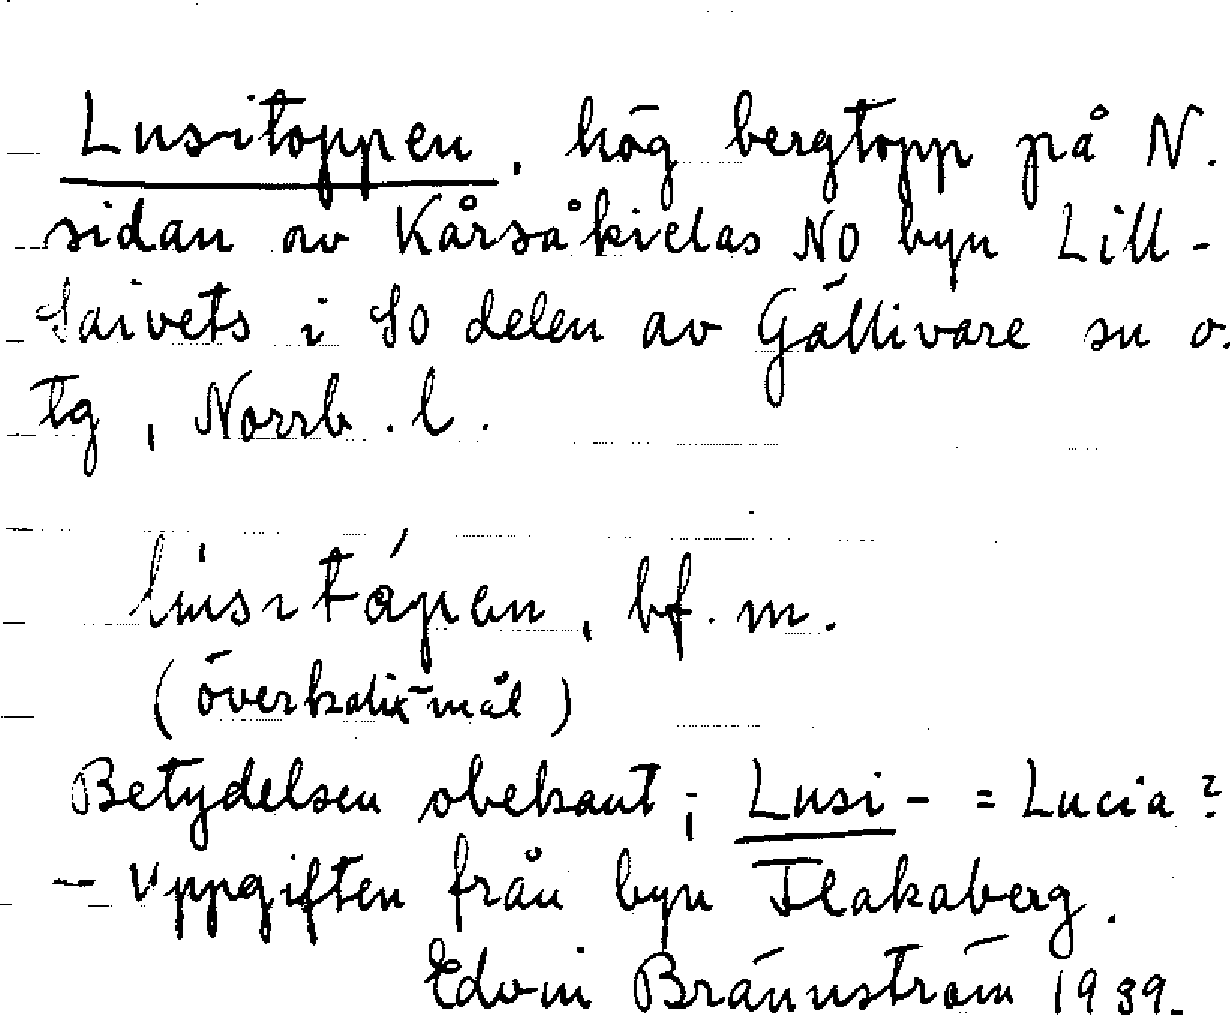 Lusitoppen, hög bergtopp på N.
sidan av Kårsåkielas NO byn Lill-
Saivets i SO delen av Gällivare sn o.
tg, Norrb. l.
bf. m.
(överkalix-mål)
Betydelsen obekant; Lusi- = Lucia?
- Uppgiften från byn Flakaberg.
Edvin Brännström 1939.